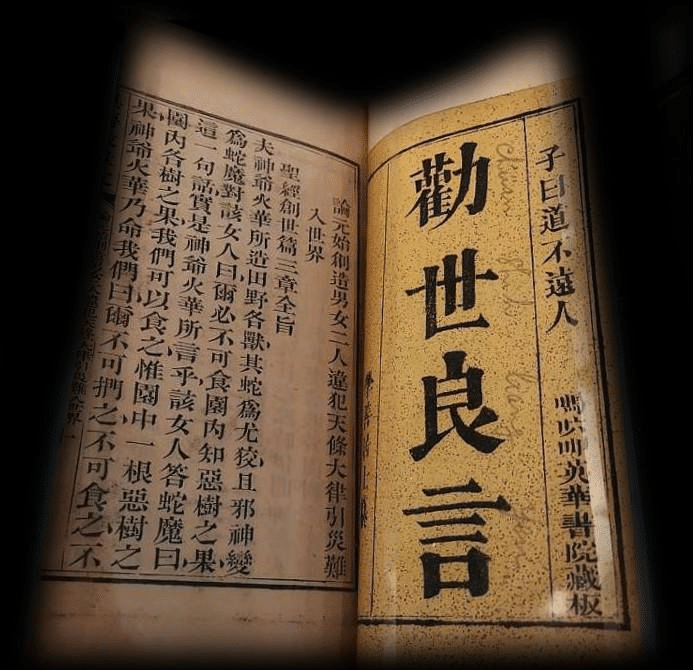 子曰道不遠人
嗎英華書院藏板
勸世良言
論元始創造男女二人違犯天條大律引災難
入世界
聖經創世篇三章全旨
夫神爺火華所造田野各獸其蛇爲尤狡且邪神變
爲蛇魔對該女人曰爾必不可食園內知惡樹之果
這一句話實是神爺火華所言乎該女人答蛇魔曰
園內各樹之果我們可以食之惟園中一根惡樹之
果神爺火華乃命我們曰爾不可捫之不可食之不